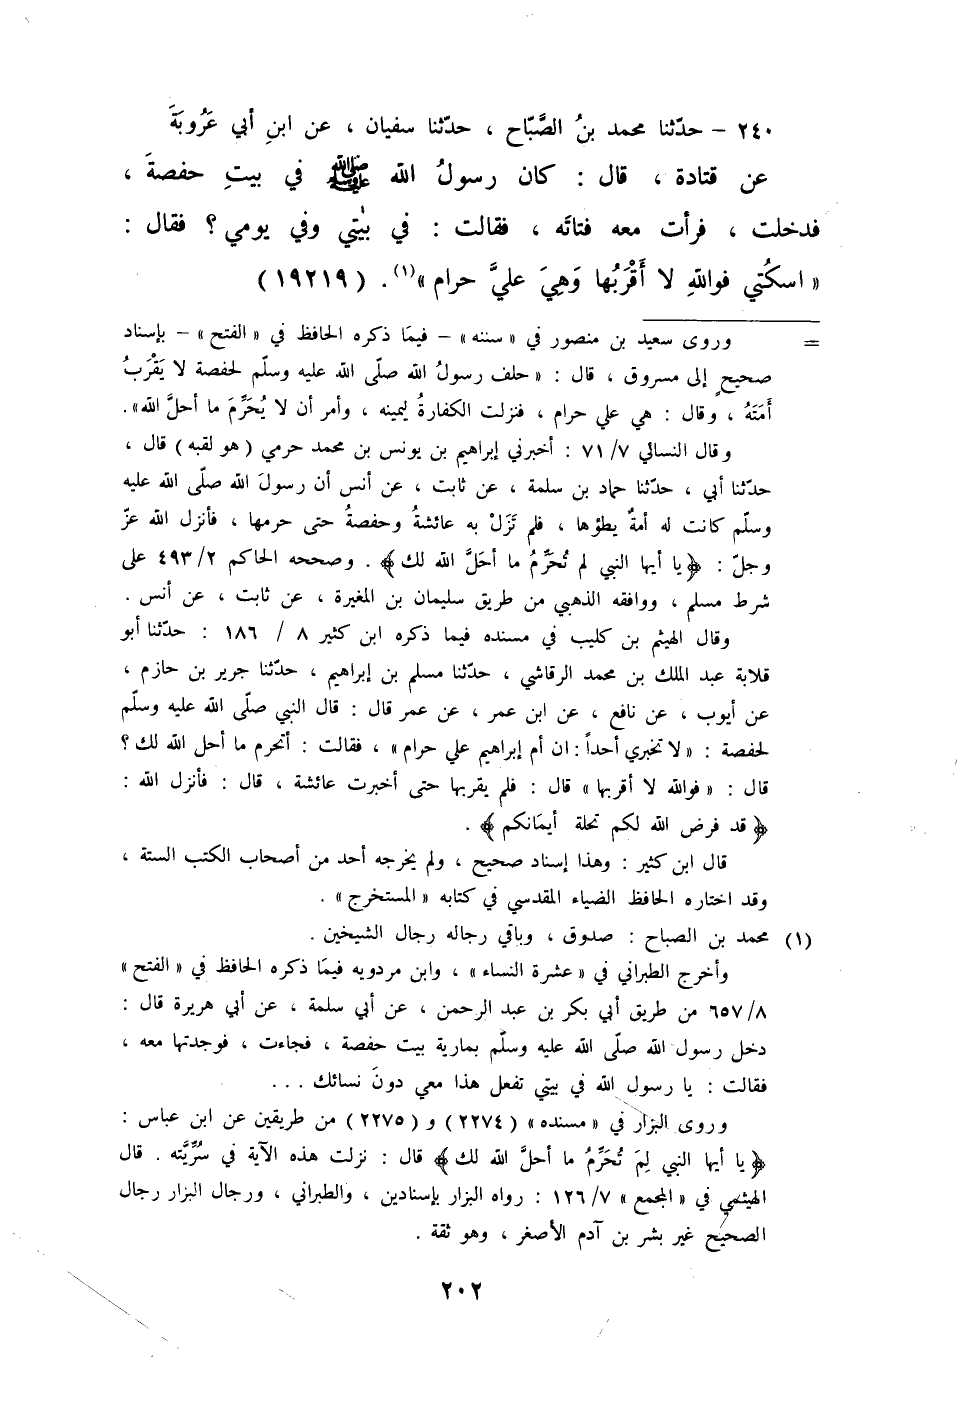 ٢٤٠ - حدّثنا محمد بنُ الصَّبّاح ، حدّثنا سفيان ، عن ابنِ أبي عَرُوبَةَ
عن قتادة ، قال : كان رسولُ الله ﷺ في بيتِ حفصةَ ،
فدخلت ، فرأت معه فتاتَه ، فقالت : في بيْتي وفي يومي ؟ فقال :
« اسكُتي فواللهِ لا أَقْرَبُها وَهِيَ عليَّ حرام »(١) . ( ١٩٢١٩ )
= وروى سعيد بن منصور في « سننه » - فيمَا ذكره الحافظ في « الفتح » - بإسناد
صحيحٍ إلى مسروق ، قال : « حلف رسولُ الله صلّى الله عليه وسلّم لحفصة لا يَقْرَبُ
أَمَتَهُ ، وقال : هي علي حرام ، فنزلت الكفارةُ ليمينه ، وأمر أن لا يُحَرِّمَ ما أحلَّ الله » .
وقال النسائي ٧/ ٧١ : أخبرني إبراهيم بن يونس بن محمد حرمي ( هو لقبه ) قال ،
حدّثنا أبي ، حدّثنا حماد بن سلمة ، عن ثابت ، عن أنس أن رسولَ الله صلّى الله عليه
وسلّم كانت له أمةٌ يطؤها ، فلم تَزَلْ به عائشةُ وحفصةُ حتى حرمها ، فأنزل الله عزّ
وجلّ : ﴿ يا أيها النبي لم تُحَرِّمُ ما أحَلَّ الله لك ﴾ . وصححه الحاكم ٢/ ٤٩٣ على
شرط مسلم ، ووافقه الذهبي من طريق سليمان بن المغيرة ، عن ثابت ، عن أنس .
وقال الهيثم بن كليب في مسنده فيما ذكره ابن كثير ٨ / ١٨٦ : حدّثنا أبو
قلابة عبد الملك بن محمد الرقاشي ، حدّثنا مسلم بن إبراهيم ، حدّثنا جرير بن حازم ،
عن أيوب ، عن نافع ، عن ابن عمر ، عن عمر قال : قال النبي صلّى الله عليه وسلّم
لحفصة : « لا تخبري أحداً : ان أم إبراهيم علي حرام » ، فقالت : أتحرم ما أحل الله لك ؟
قال : « فوالله لا أقربها » قال : فلم يقربها حتى أخبرت عائشة ، قال : فأنزل الله :
﴿ قد فرض الله لكم تحلة أيمَانكم ﴾ .
قال ابن كثير : وهذا إسناد صحيح ، ولم يخرجه أحد من أصحاب الكتب الستة ،
وقد اختاره الحافظ الضياء المقدسي في كتابه « المستخرج » .
(١) محمد بن الصباح : صدوق ، وباقي رجاله رجال الشيخين .
وأخرج الطبراني في « عشرة النساء » ، وابن مردويه فيمَا ذكره الحافظ في « الفتح »
٨/ ٦٥٧ من طريق أبي بكر بن عبد الرحمن ، عن أبي سلمة ، عن أبي هريرة قال :
دخل رسول الله صلّى الله عليه وسلّم بمارية بيت حفصة ، فجاءت ، فوجدتها معه ،
فقالت : يا رسول الله في بيتي تفعل هذا معي دونَ نسائك . . .
وروى البزار في « مسنده » ( ٢٢٧٤ ) و ( ٢٢٧٥ ) من طريقين عن ابن عباس :
﴿ يا أيها النبي لِمَ تُحَرِّمُ ما أحلَّ الله لك ﴾ قال : نزلت هذه الآية في سُرِّيَّته . قال
الهيثمي في « المجمع » ٧/ ١٢٦ : رواه البزار بإسنادين ، والطبراني ، ورجال البزار رجال
الصحيح غير بشر بن آدم الأصغر ، وهو ثقة .
٢٠٢